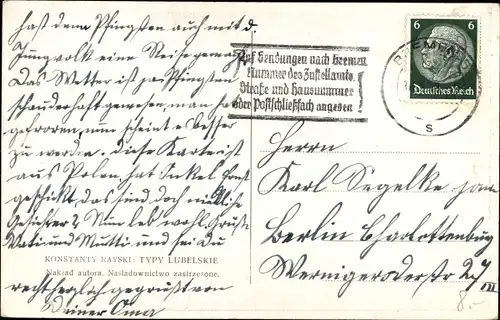 hast dem Pfingsten auch mit d.
Jungvolk eine Reise gemacht
Das Wetter ist zu Pfingsten
schauderhaft gewesen, man hat
gefroren, nun scheint es besser
zu werden. Diese Karte ist
aus Polen, hat Onkel Ernst
geschickt das sind doch niedliche
Gesichter? Nun leb wohl. Grüße
Vati und Mutti und sei Du
KONSTANTY RAYSKI: TYPY LUBELSKIE
Nakład autora. Naśladownictwo zastrzeżone.
recht herzlich gegrüßt von
Deiner Oma
Auf Sendungen nach Bremen
Nummer des Zustellamts
Straße und Hausnummer
oder Postschließfach angeben
BREMEN
S
6 6
Deutsches Reich
Herrn
Karl Segelke
Berlin Charlottenburg
Wernigeroderstr 27
III
8.-